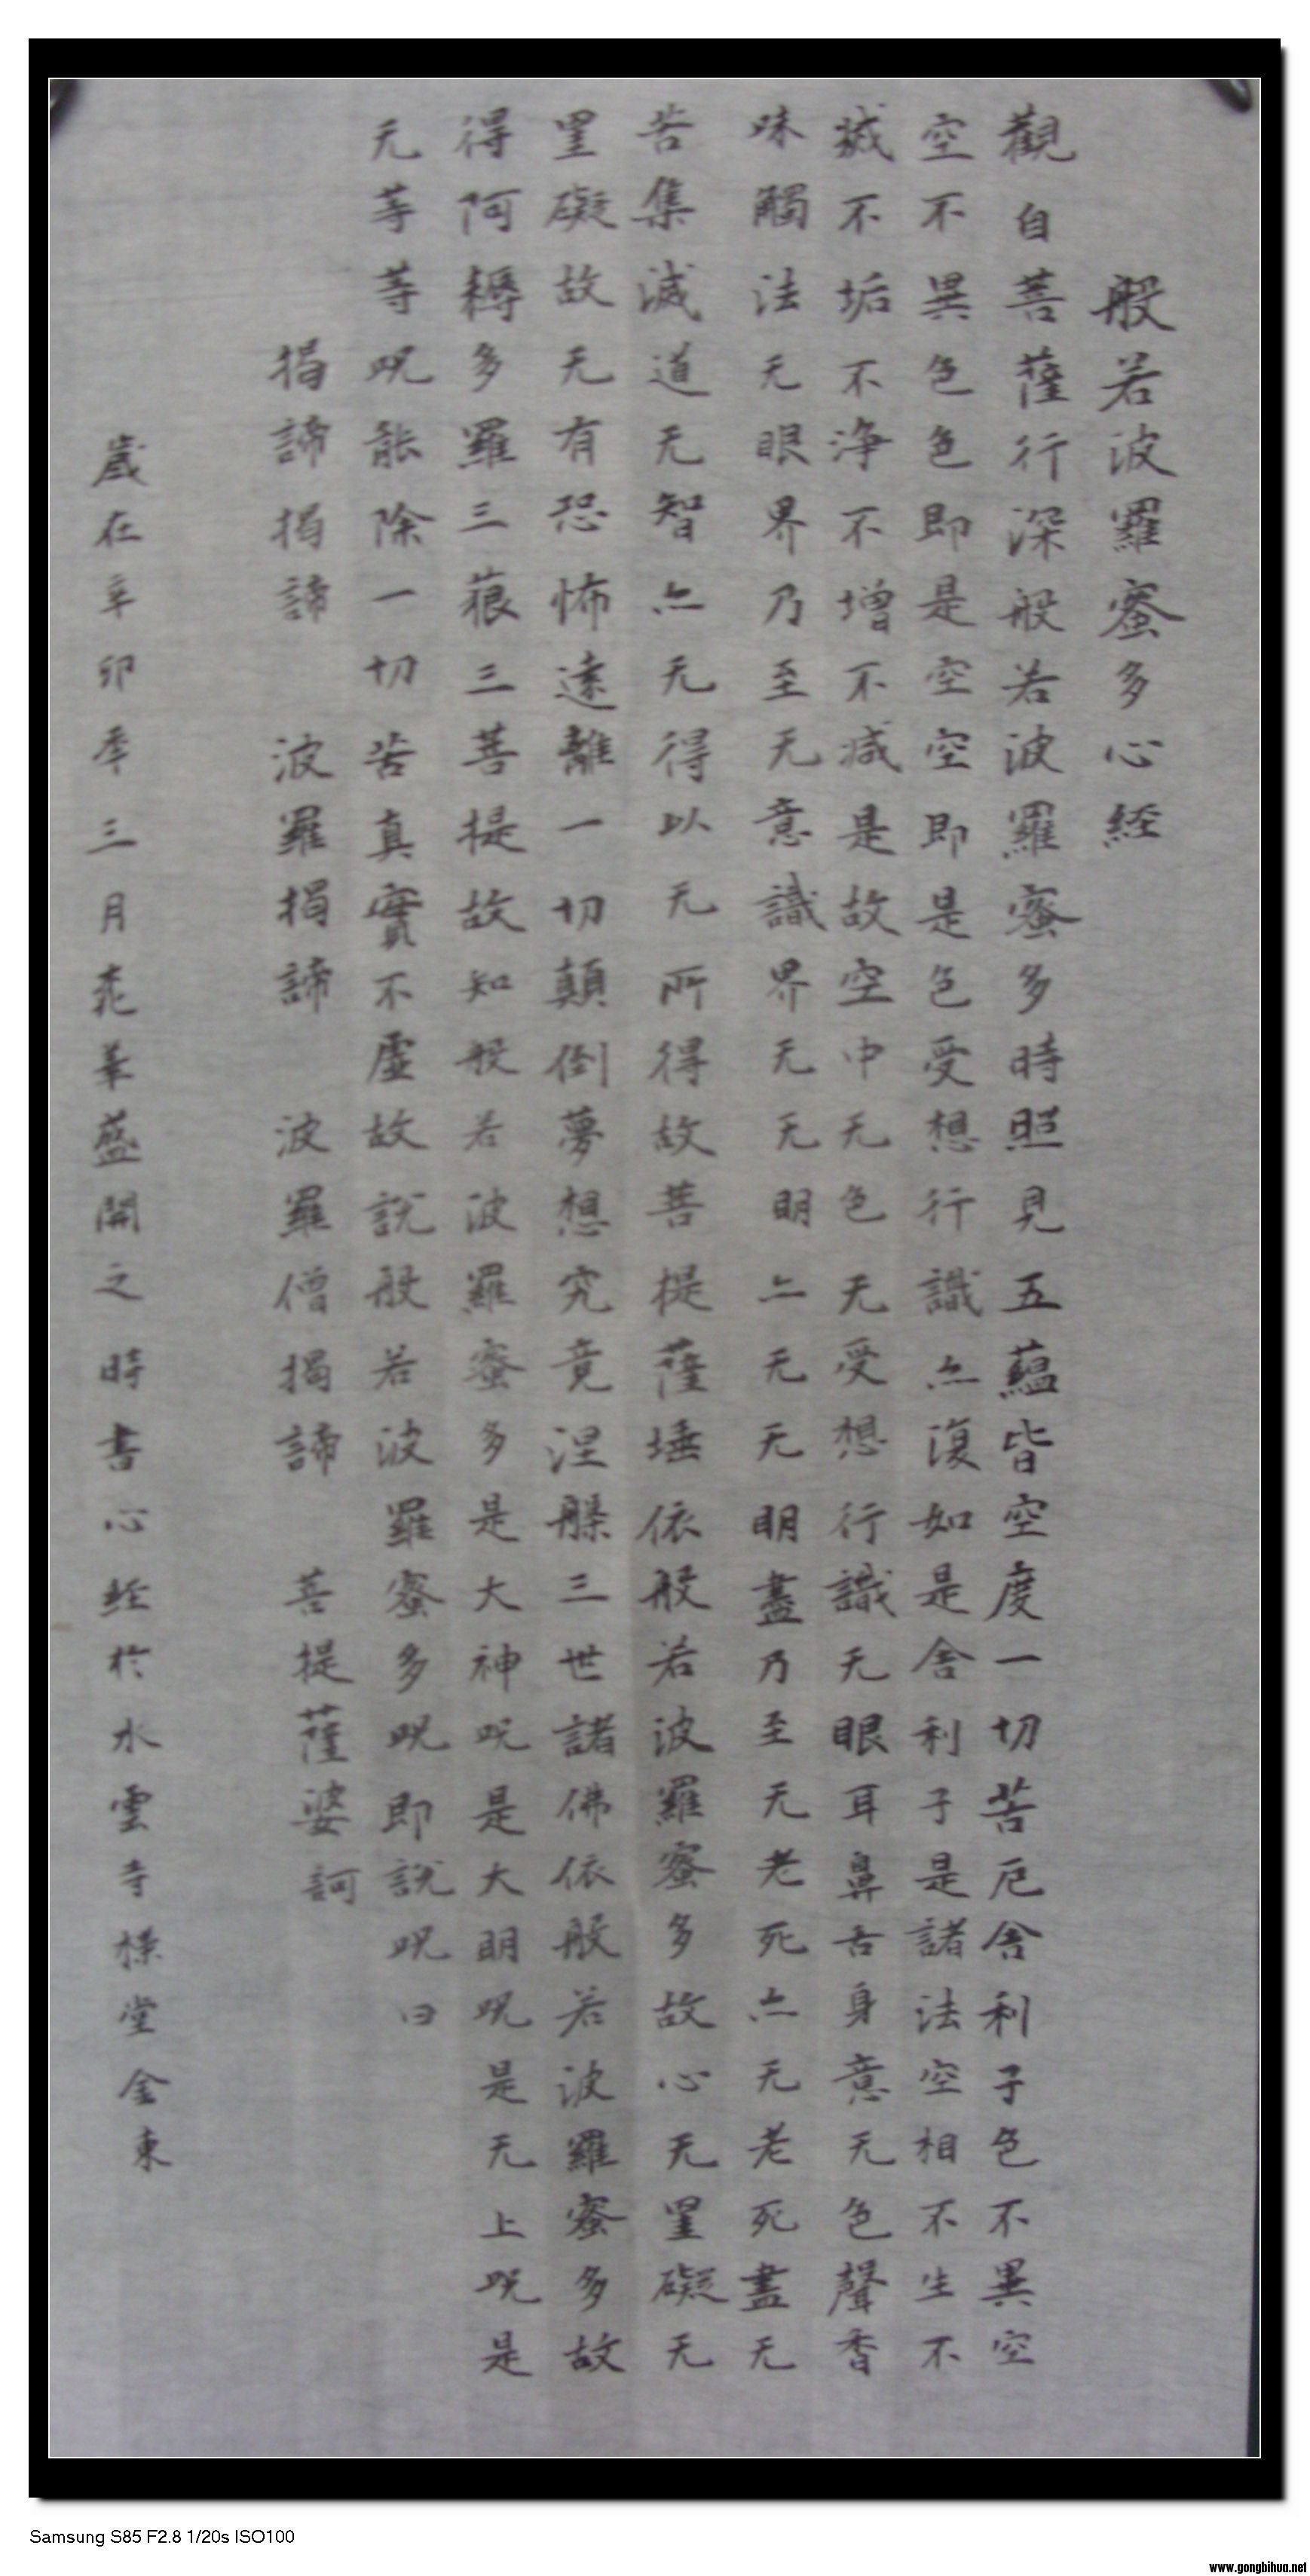 般若波羅蜜多心経
觀自菩薩行深般若波羅蜜多時照見五蘊皆空度一切苦厄舍利子色不異空
空不異色色即是空空即是色受想行識亦復如是舍利子是諸法空相不生不
滅不垢不淨不增不減是故空中无色无受想行識无眼耳鼻舌身意无色聲香
味觸法无眼界乃至无意識界无无明亦无无明盡乃至无老死亦无老死盡无
苦集滅道无智亦无得以无所得故菩提薩埵依般若波羅蜜多故心无罣礙无
罣礙故无有恐怖遠離一切顛倒夢想究竟涅槃三世諸佛依般若波羅蜜多故
得阿耨多羅三藐三菩提故知般若波羅蜜多是大神呪是大明呪是无上呪是
无等等呪能除一切苦真實不虛故說般若波羅蜜多呪即說呪曰
揭諦揭諦 波羅揭諦 波羅僧揭諦 菩提薩婆訶
歲在辛卯年三月華盛開之時書心経於水雲寺堂金東
Samsung S85 F2.8 1/20s ISO100
www.gongbihua.net